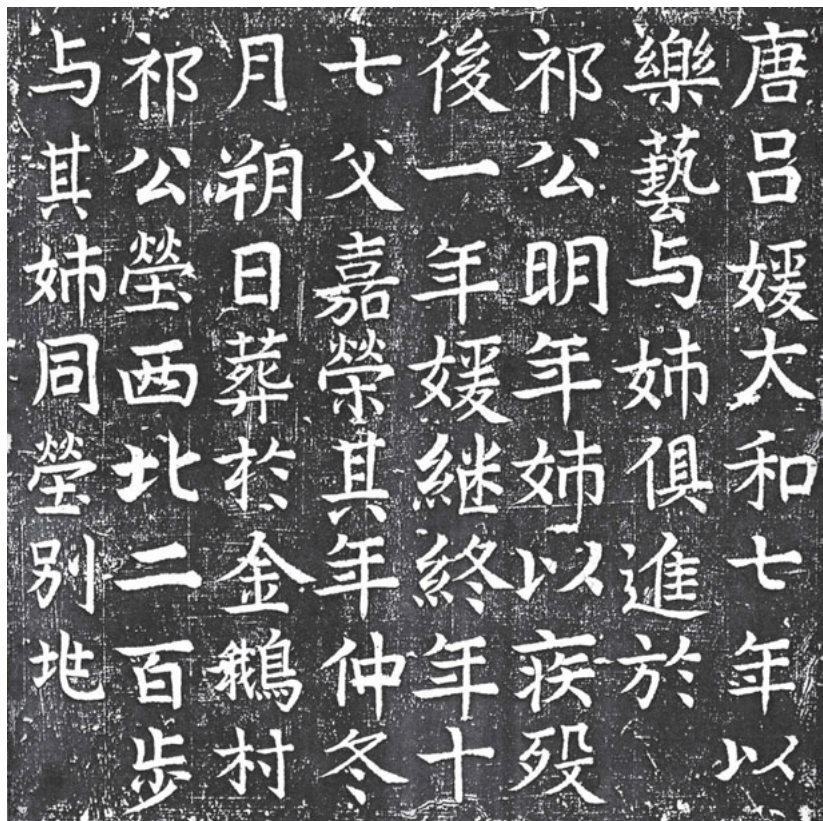 唐吕媛大和七年以
樂藝与姉俱進於
祁公明年姉以疾殁
後一年媛継終年十
七父嘉榮其年仲冬
月朔日葬於金鵝村
祁公塋西北二百步
与其姉同塋別地